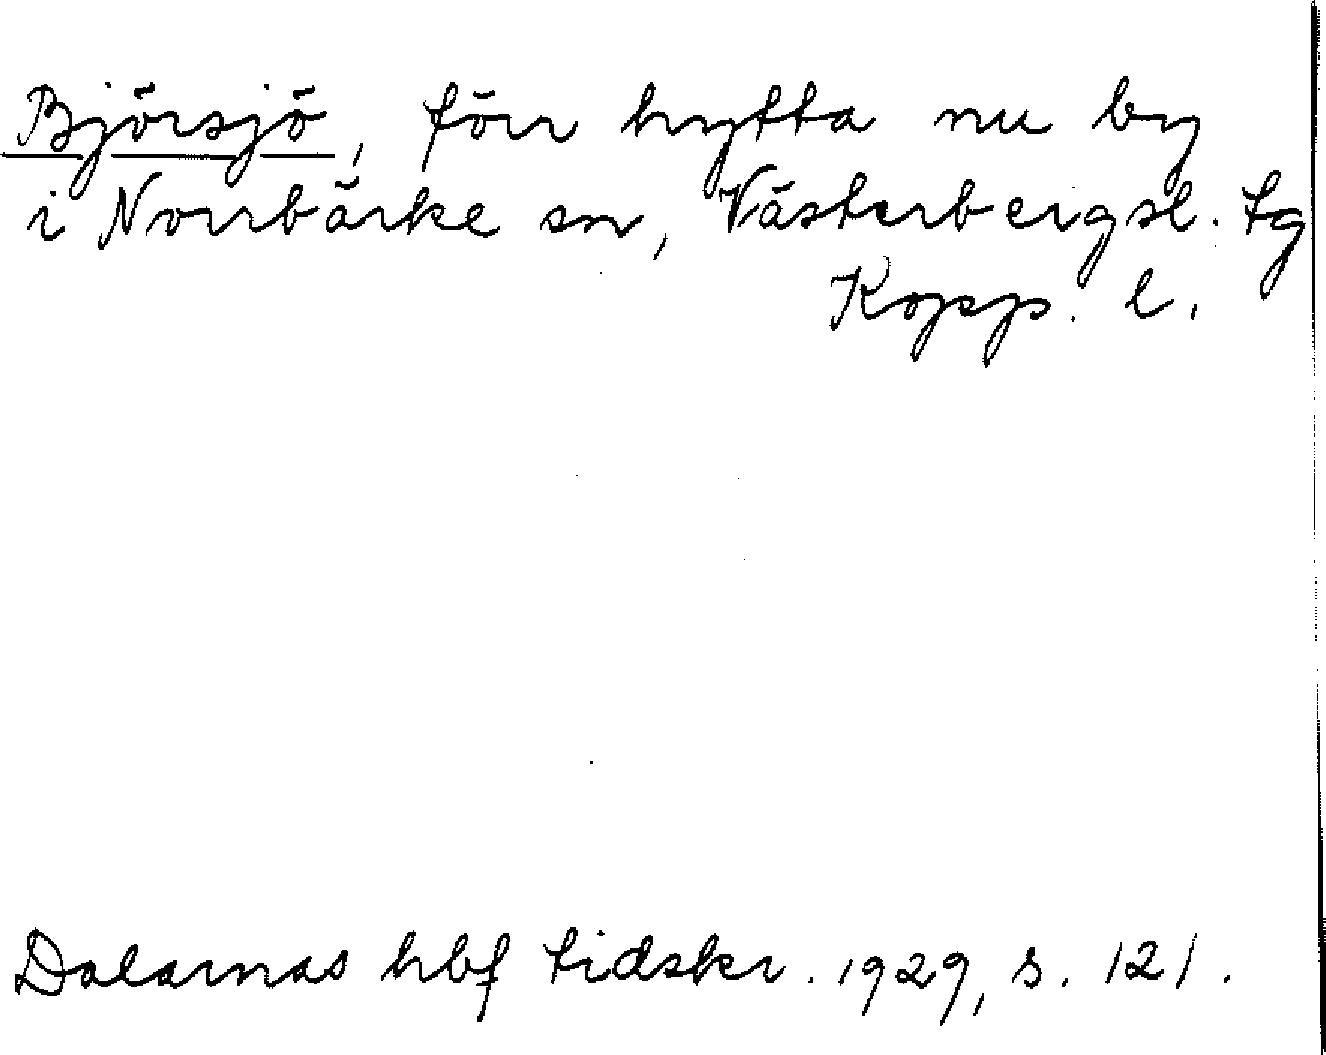 Björsjö, förr hytta nu by
i Norrbärke sn, Västerbergsl. tg
Kopp. l.
Dalarnas hbf tidskr. 1929, s. 121.